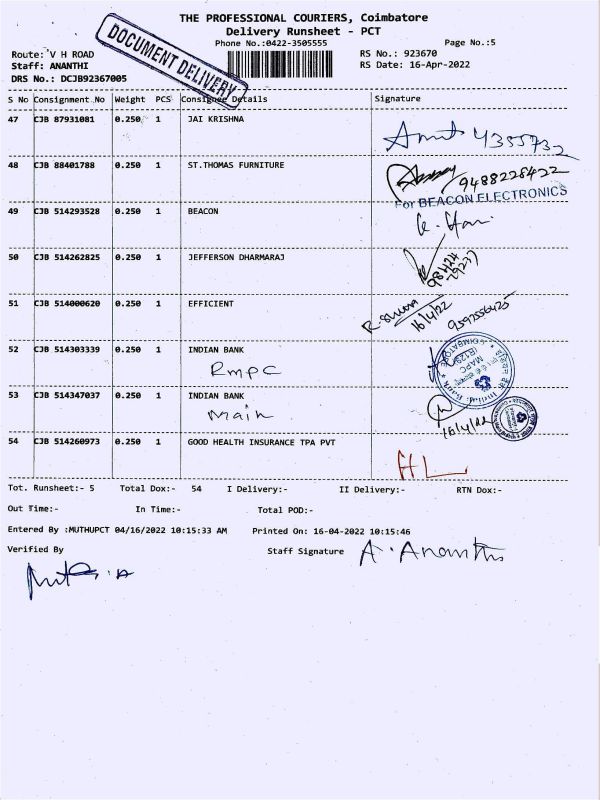 THE PROFESSIONAL COURIERS, Coimbatore
Delivery Runsheet - PCT
DOCUMENT DELIVERY
Phone No.:0422-3505555
Page No.:5
Route: V H ROAD
RS No.: 923670
Staff: ANANTHI
RS Date: 16-Apr-2022
DRS No.: DCJB92367005
S No Consignment.No Weight PCS Consignee Details Signature
47 CJB 87931081 0.250 1 JAI KRISHNA
48 CJB 88401788 0.250 1 ST.THOMAS FURNITURE
9488228422
For BEACON ELECTRONICS
49 CJB 514293528 0.250 1 BEACON
50 CJB 514262825 0.250 1 JEFFERSON DHARMARAJ
51 CJB 514000620 0.250 1 EFFICIENT
16/4/22
52 CJB 514303339 0.250 1 INDIAN BANK
RMPC
53 CJB 514347037 0.250 1 INDIAN BANK
main
16/4/22
54 CJB 514260973 0.250 1 GOOD HEALTH INSURANCE TPA PVT
HL
Tot. Runsheet:- 5 Total Dox:- 54 I Delivery:- II Delivery:- RTN Dox:-
Out Time:- In Time:- Total POD:-
Entered By :MUTHUPCT 04/16/2022 10:15:33 AM Printed On: 16-04-2022 10:15:46
Verified By Staff Signature A. Ananthi